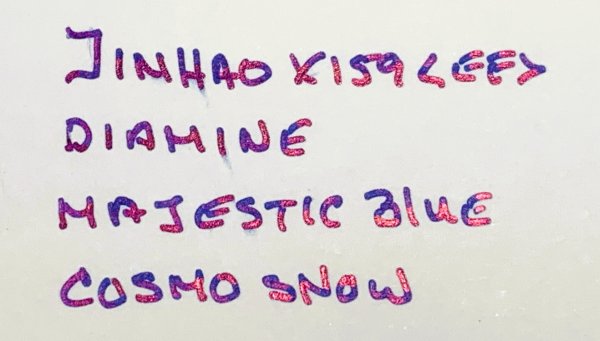 JINHAO X159 <EF>
DIAMINE
MAJESTIC BluE
COSMO SNOW